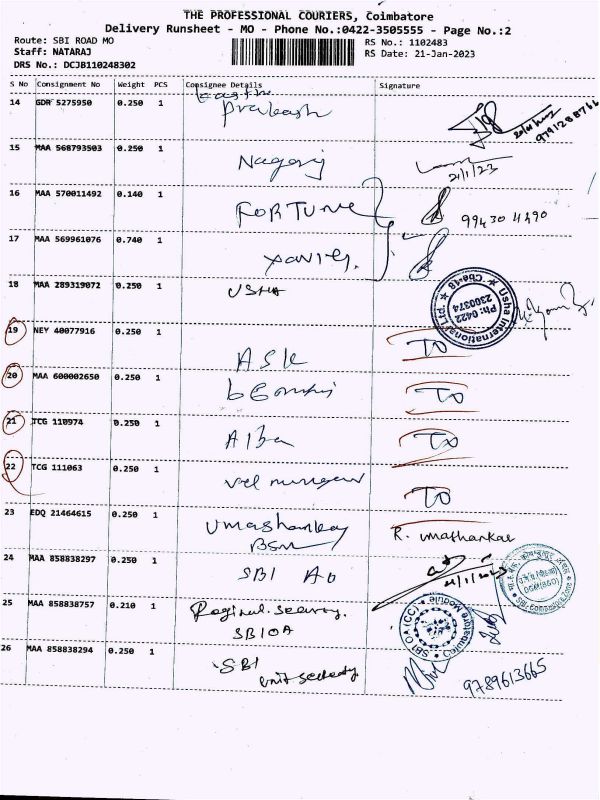 THE PROFESSIONAL COURIERS, Coimbatore
Delivery Runsheet - MO - Phone No.:0422-3505555 - Page No.:2
Route: SBI ROAD MO
RS No.: 1102483
Staff: NATARAJ
RS Date: 21-Jan-2023
DRS No.: DCJB110248302
S No Consignment No Weight PCS Consignee Details Signature
14 GDR 5275950 0.250 1 Prakash 9791288766
15 MAA 568793503 0.250 1 Nagaraj 21/1/23
16 MAA 570011492 0.140 1 FORTUNE 994304490
17 MAA 569961076 0.740 1
18 MAA 289319072 0.250 1 USHA
Usha International Pvt Ltd Cbe-18
Ph: 0422
2300374
19 NEY 40077916 0.250 1 ASK TO
20 MAA 600002650 0.250 1 TO
21 TCG 110974 0.250 1 Alba TO
22 TCG 111063 0.250 1 vel murugan TO
23 EDQ 21464615 0.250 1 Umashankar R. umashankar
BSNL
24 MAA 858838297 0.250 1 SBI AO 21/1/23
25 MAA 858838757 0.210 1
SBIOA
SBI OA (CC) Coimbatore Module
26 MAA 858838294 0.250 1 SBI 9789613665